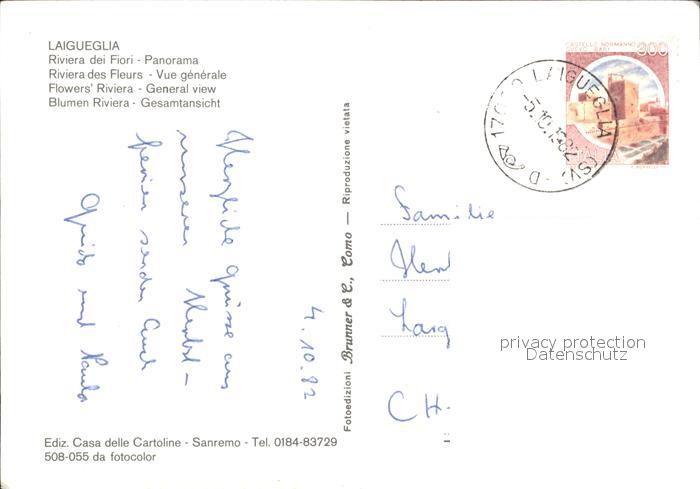 LAIGUEGLIA
Riviera dei Fiori - Panorama
Riviera des Fleurs - Vue générale
Flowers' Riviera - General view
Blumen Riviera - Gesamtansicht
4.10.82
Herzliche Grüsse aus
unseren Herbst-
ferien senden Euch
Guido und Paula
Fotoedizioni Brunner & C., Como — Riproduzione vietata
CASTELLO NORMANNO
SVEVO BARI
300
17020 LAIGUEGLIA (SV) - D
-5.10.1982
Familie
CH.
privacy protection
Datenschutz
Ediz. Casa delle Cartoline - Sanremo - Tel. 0184-83729
508-055 da fotocolor